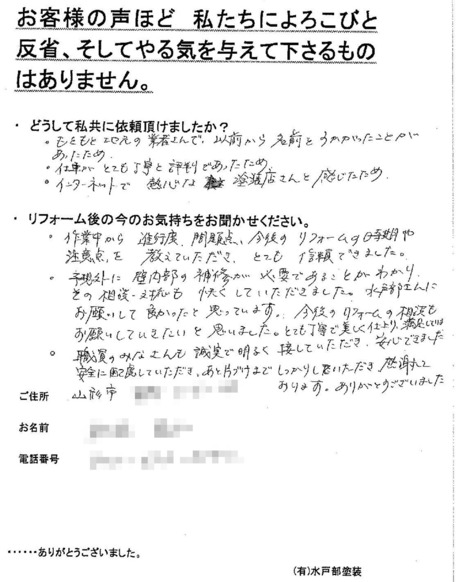 お客様の声ほど 私たちによろこびと
反省、そしてやる気を与えて下さるもの
はありません。
・ どうして私共に依頼頂けましたか？
・もともと地元の業者さんで、以前から名前をうかがったことが
あったため
・仕事がとても丁寧と評判であったため
・インターネットで 熱心な 塗装店さんと感じたため
・ リフォーム後の今のお気持ちをお聞かせください。
・ 作業中から 進行度、問題点、今後のリフォームの時期や
注意点を 教えていただき、とても信頼できました。
・ 予想外に壁内部の補修が必要であることがわかり、
その相談・対応も 快くしていただきました。水戸部さんに
お願いして良かったと思っています。今後のリフォームの相談も
お願いしていきたいと思いました。とても丁寧で美しく仕上り、満足しています
・ 職員のみなさんも誠実で明るく接していただき、安心できました
安全に配慮していただき、あと片づけまでしっかりしていただき 感謝して
おります。ありがとうございました
ご住所 山形市
お名前
電話番号
・・・・・・ありがとうございました。
(有)水戸部塗装